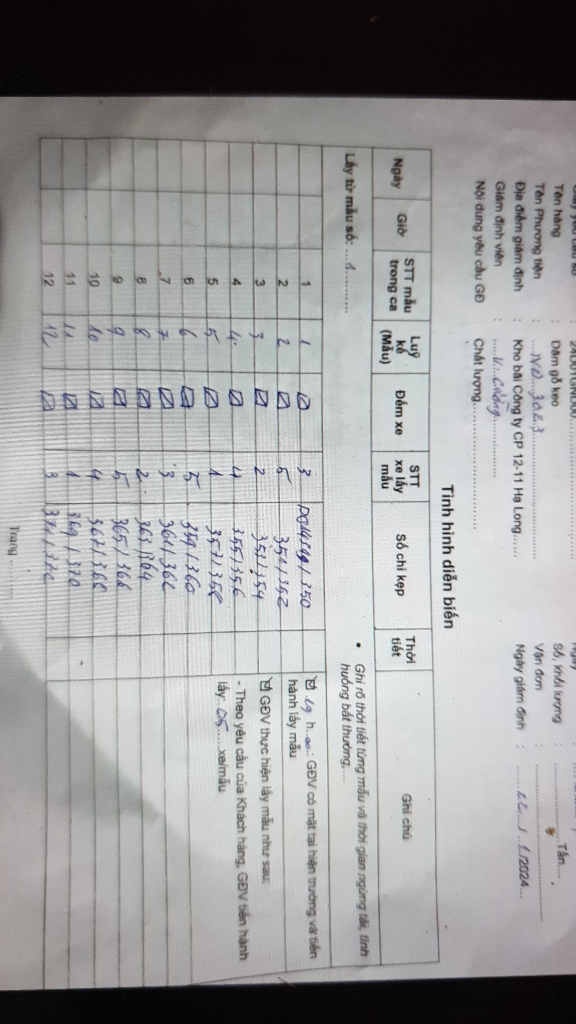 Tên hàng : Dăm gỗ keo
Số, khối lượng : Tấn....
Tên Phương tiện : IVD 3023
Vận đơn :
Địa điểm giám định : Kho bãi Công ty CP 12-11 Hạ Long......
Ngày giám định : /2024...
Giám định viên : V. Cường
Nội dung yêu cầu GĐ : Chất lượng
Tình hình diễn biến
Ngày Giờ STT mẫu trong ca Luỹ kế (Mẫu) Đếm xe STT xe lấy mẫu Số chì kẹp Thời tiết Ghi chú
Lấy từ mẫu số: ....1...........
• Ghi rõ thời tiết từng mẫu và thời gian ngừng tải, tình huống bất thường....
1 1 ☑ 3 349/350
2 2 ☑ 5 351/352
3 3 ☑ 2 353/354
4 4 ☑ 4 355/356
5 5 ☑ 1 357/358
6 6 ☑ 5 359/360
7 7 ☑ 3 361/362
8 8 ☑ 2 363/364
9 9 ☑ 5 365/366
10 10 ☑ 4 367/368
11 11 ☑ 1 369/370
12 12 ☑ 3 371/372
☑ h : GĐV có mặt tại hiện trường và tiến hành lấy mẫu
☑ GĐV thực hiện lấy mẫu như sau:
- Theo yêu cầu của Khách hàng, GĐV tiến hành lấy..05.....xe/mẫu
Trang ..........